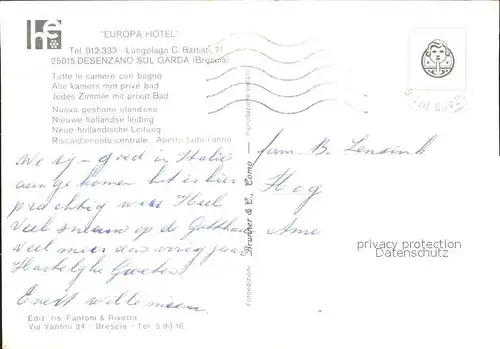 he
"EUROPA HOTEL"
Tel. 912.333 - Lungolago C. Battisti, 71
25015 DESENZANO SUL GARDA (Brescia)
Tutte le camere con bagno
Alle kamers met privé bad
Jedes Zimmer mit privat Bad
Nuova gestione olandese
Nieuwe hollandse leiding
Neue holländische Leitung
Riscaldamento centrale - Aperto tutto l'anno
We zijn goed in Italie
aangekomen het is hier
prachtig weer Heel
veel sneeuw op de Gotthard
veel meer dan vorig jaar
Hartelijke Groeten
Evert Willemsen.
Ediz. ris. Fantoni & Rivetta
Via Vantini 34 - Brescia - Tel. 5.93.16
Fotoedizioni Brunner & C., Como - Riproduzione vietata
fam. B. Lensink
privacy protection
Datenschutz